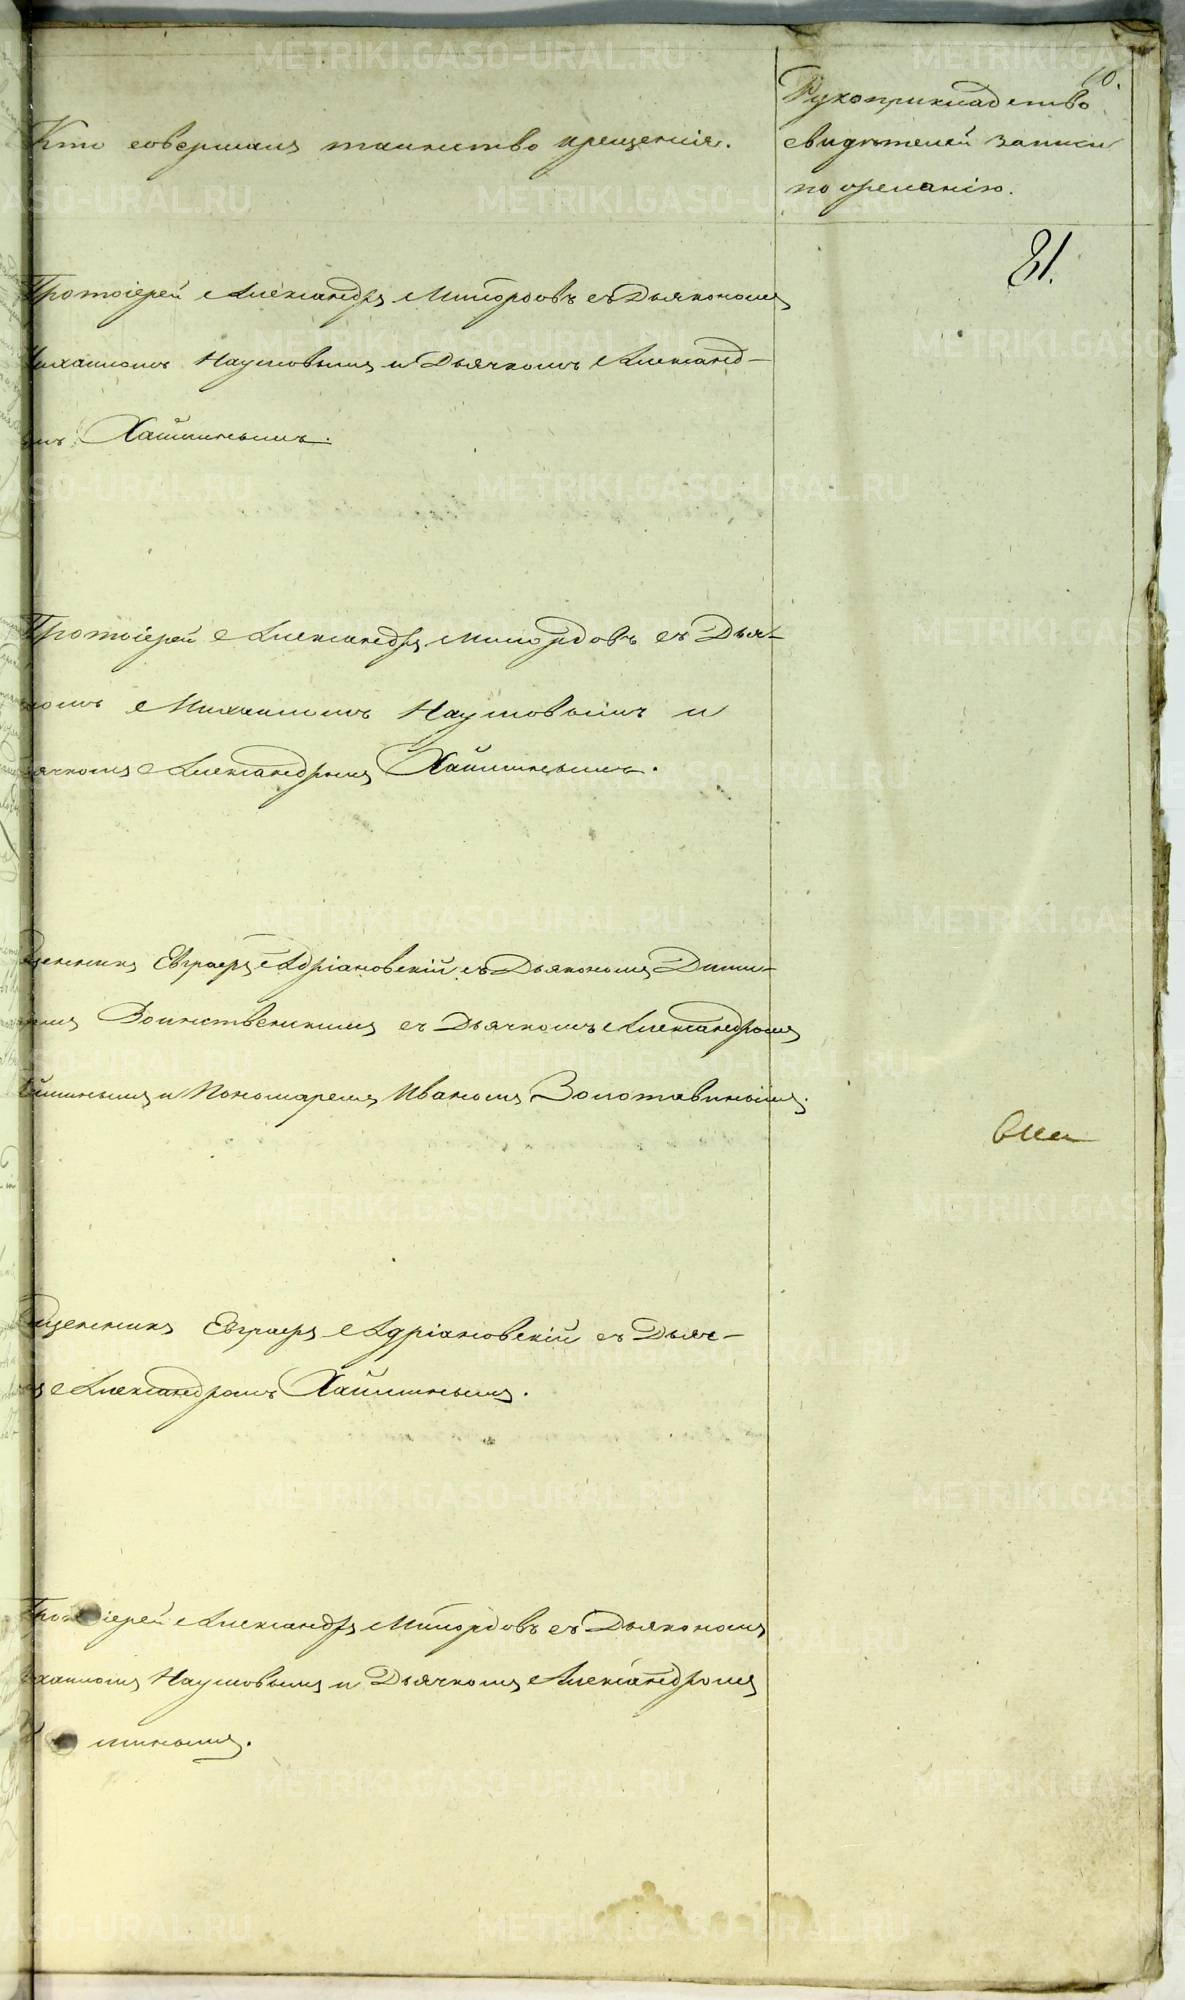 10.
Кто совершалъ таинство крещенія.
Рукоприкладство
свидѣтелей записи
по желанію.
81.
Протоіерей Александръ Милордовъ съ Дьякономъ
Михаиломъ Наумовымъ и Дьячкомъ Александ-
омъ Хайминымъ.
Протоіерей Александръ Милордовъ съ Дья-
кономъ Михаиломъ Наумовымъ и
Дьячкомъ Александромъ Хайминымъ.
щенникъ Евграфъ Адріановскій съ Дьякономъ Дими-
Воинственскимъ съ Дьячкомъ Александромъ
айминымъ и Пономаремъ Иваномъ Золотавинымъ.
щенникъ Евграфъ Адріановскій съ Дьяч-
Александромъ Хайминымъ.
Протоіерей Александръ Милордовъ съ Дьякономъ
ихаиломъ Наумовымъ и Дьячкомъ Александромъ
Х минымъ.
METRIKI.GASO-URAL.RU